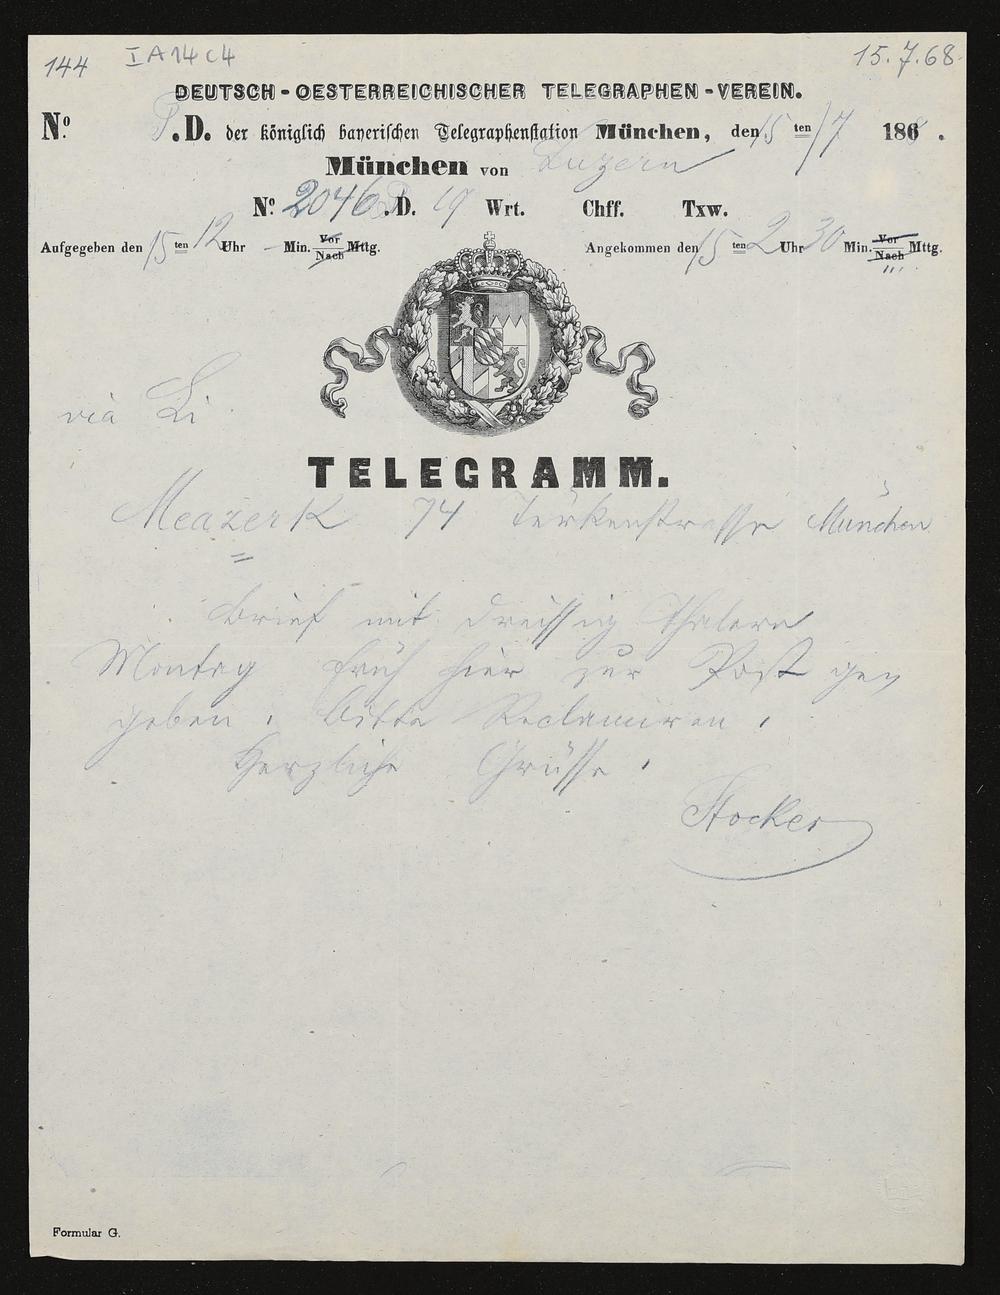 144 I A 14 c 4 15.7.68.
DEUTSCH-OESTERREICHISCHER TELEGRAPHEN-VEREIN.
Nº .D. der königlich bayerischen Telegraphenstation München, den 15 ten /7 1868.
München von Luzern
Nº 2046 .D. 19 Wrt. Chff. Txw.
Aufgegeben den 15 ten 12 Uhr – Min. Vor Nach Mttg. Angekommen den 15 ten 2 Uhr 30 Min. Vor Nach Mttg.
via Li
TELEGRAMM.
Meazer K 74 Türkenstrasse München
Brief mit dreissig Thalern
Montag früh hier zur Post ge
geben. Bitte Reclamiren.
Herzliche Grüsse.
Stocker
Formular G.